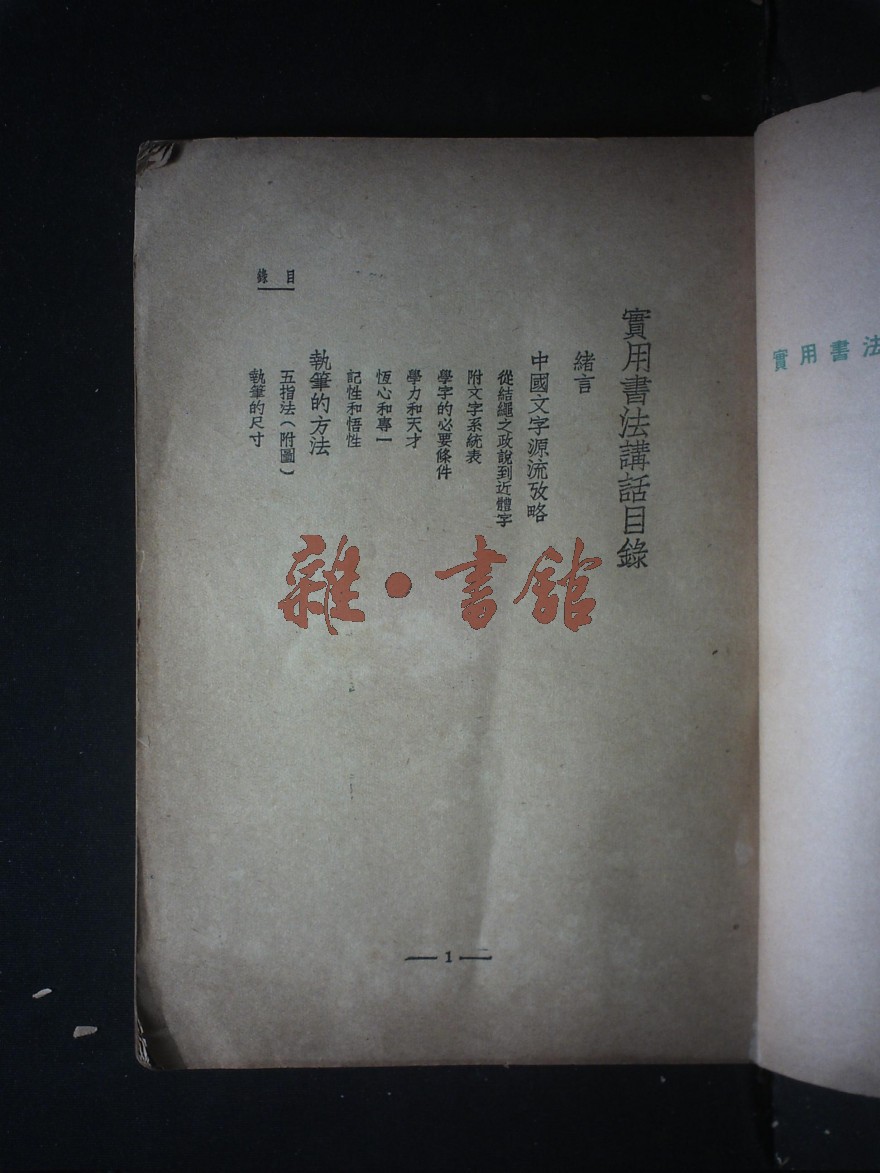 實用書法
實用書法講話目錄
緒言
中國文字源流攷略
從結繩之政說到近體字
附文字系統表
學字的必要條件
學力和天才
恆心和專一
記性和悟性
執筆的方法
五指法（附圖）
執筆的尺寸
目錄
雜·書館
— 1 —